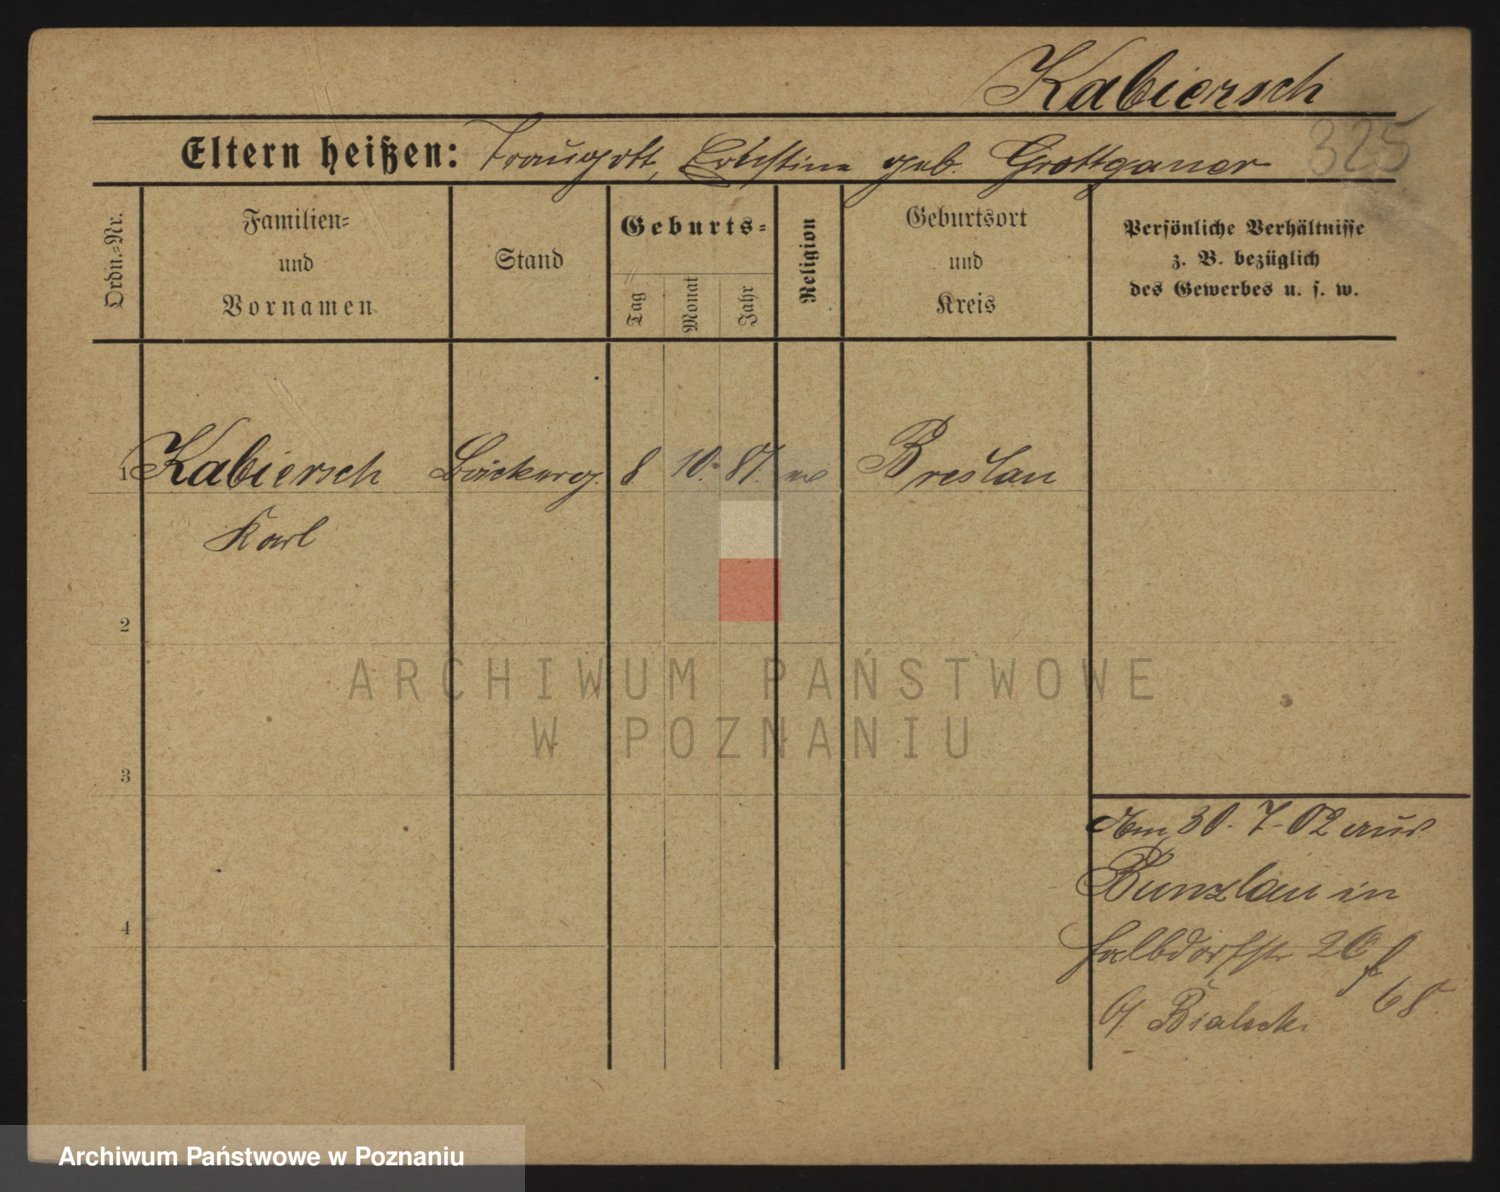 Kabiersch
325
Eltern heißen: Traugott, Christine geb. Grottganer
Ordn.-Nr.
Familien-
und
Vornamen
Stand
Geburts-
Tag
Monat
Jahr
Religion
Geburtsort
und
Kreis
Persönliche Verhältnisse
z. B. bezüglich
des Gewerbes u. s. w.
1 Kabiersch Bäckerg. 8 10. 81. Breslau
Karl
2
3
4
Am 30-7-02 aus
Bunzlau in
Halbdorfstr 26
b/ Bialecki 68
ARCHIWUM PAŃSTWOWE
W POZNANIU
Archiwum Państwowe w Poznaniu